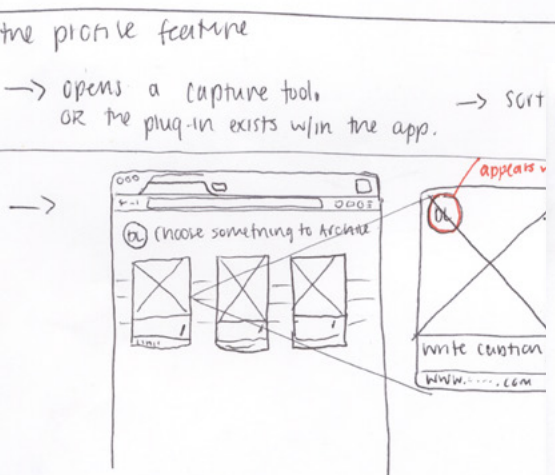 the profile feature
→ opens a capture tool.
OR the plug-in exists w/in the app.
→ sort
→
appears w
DL choose something to Archive
DL
write caption
www.....com